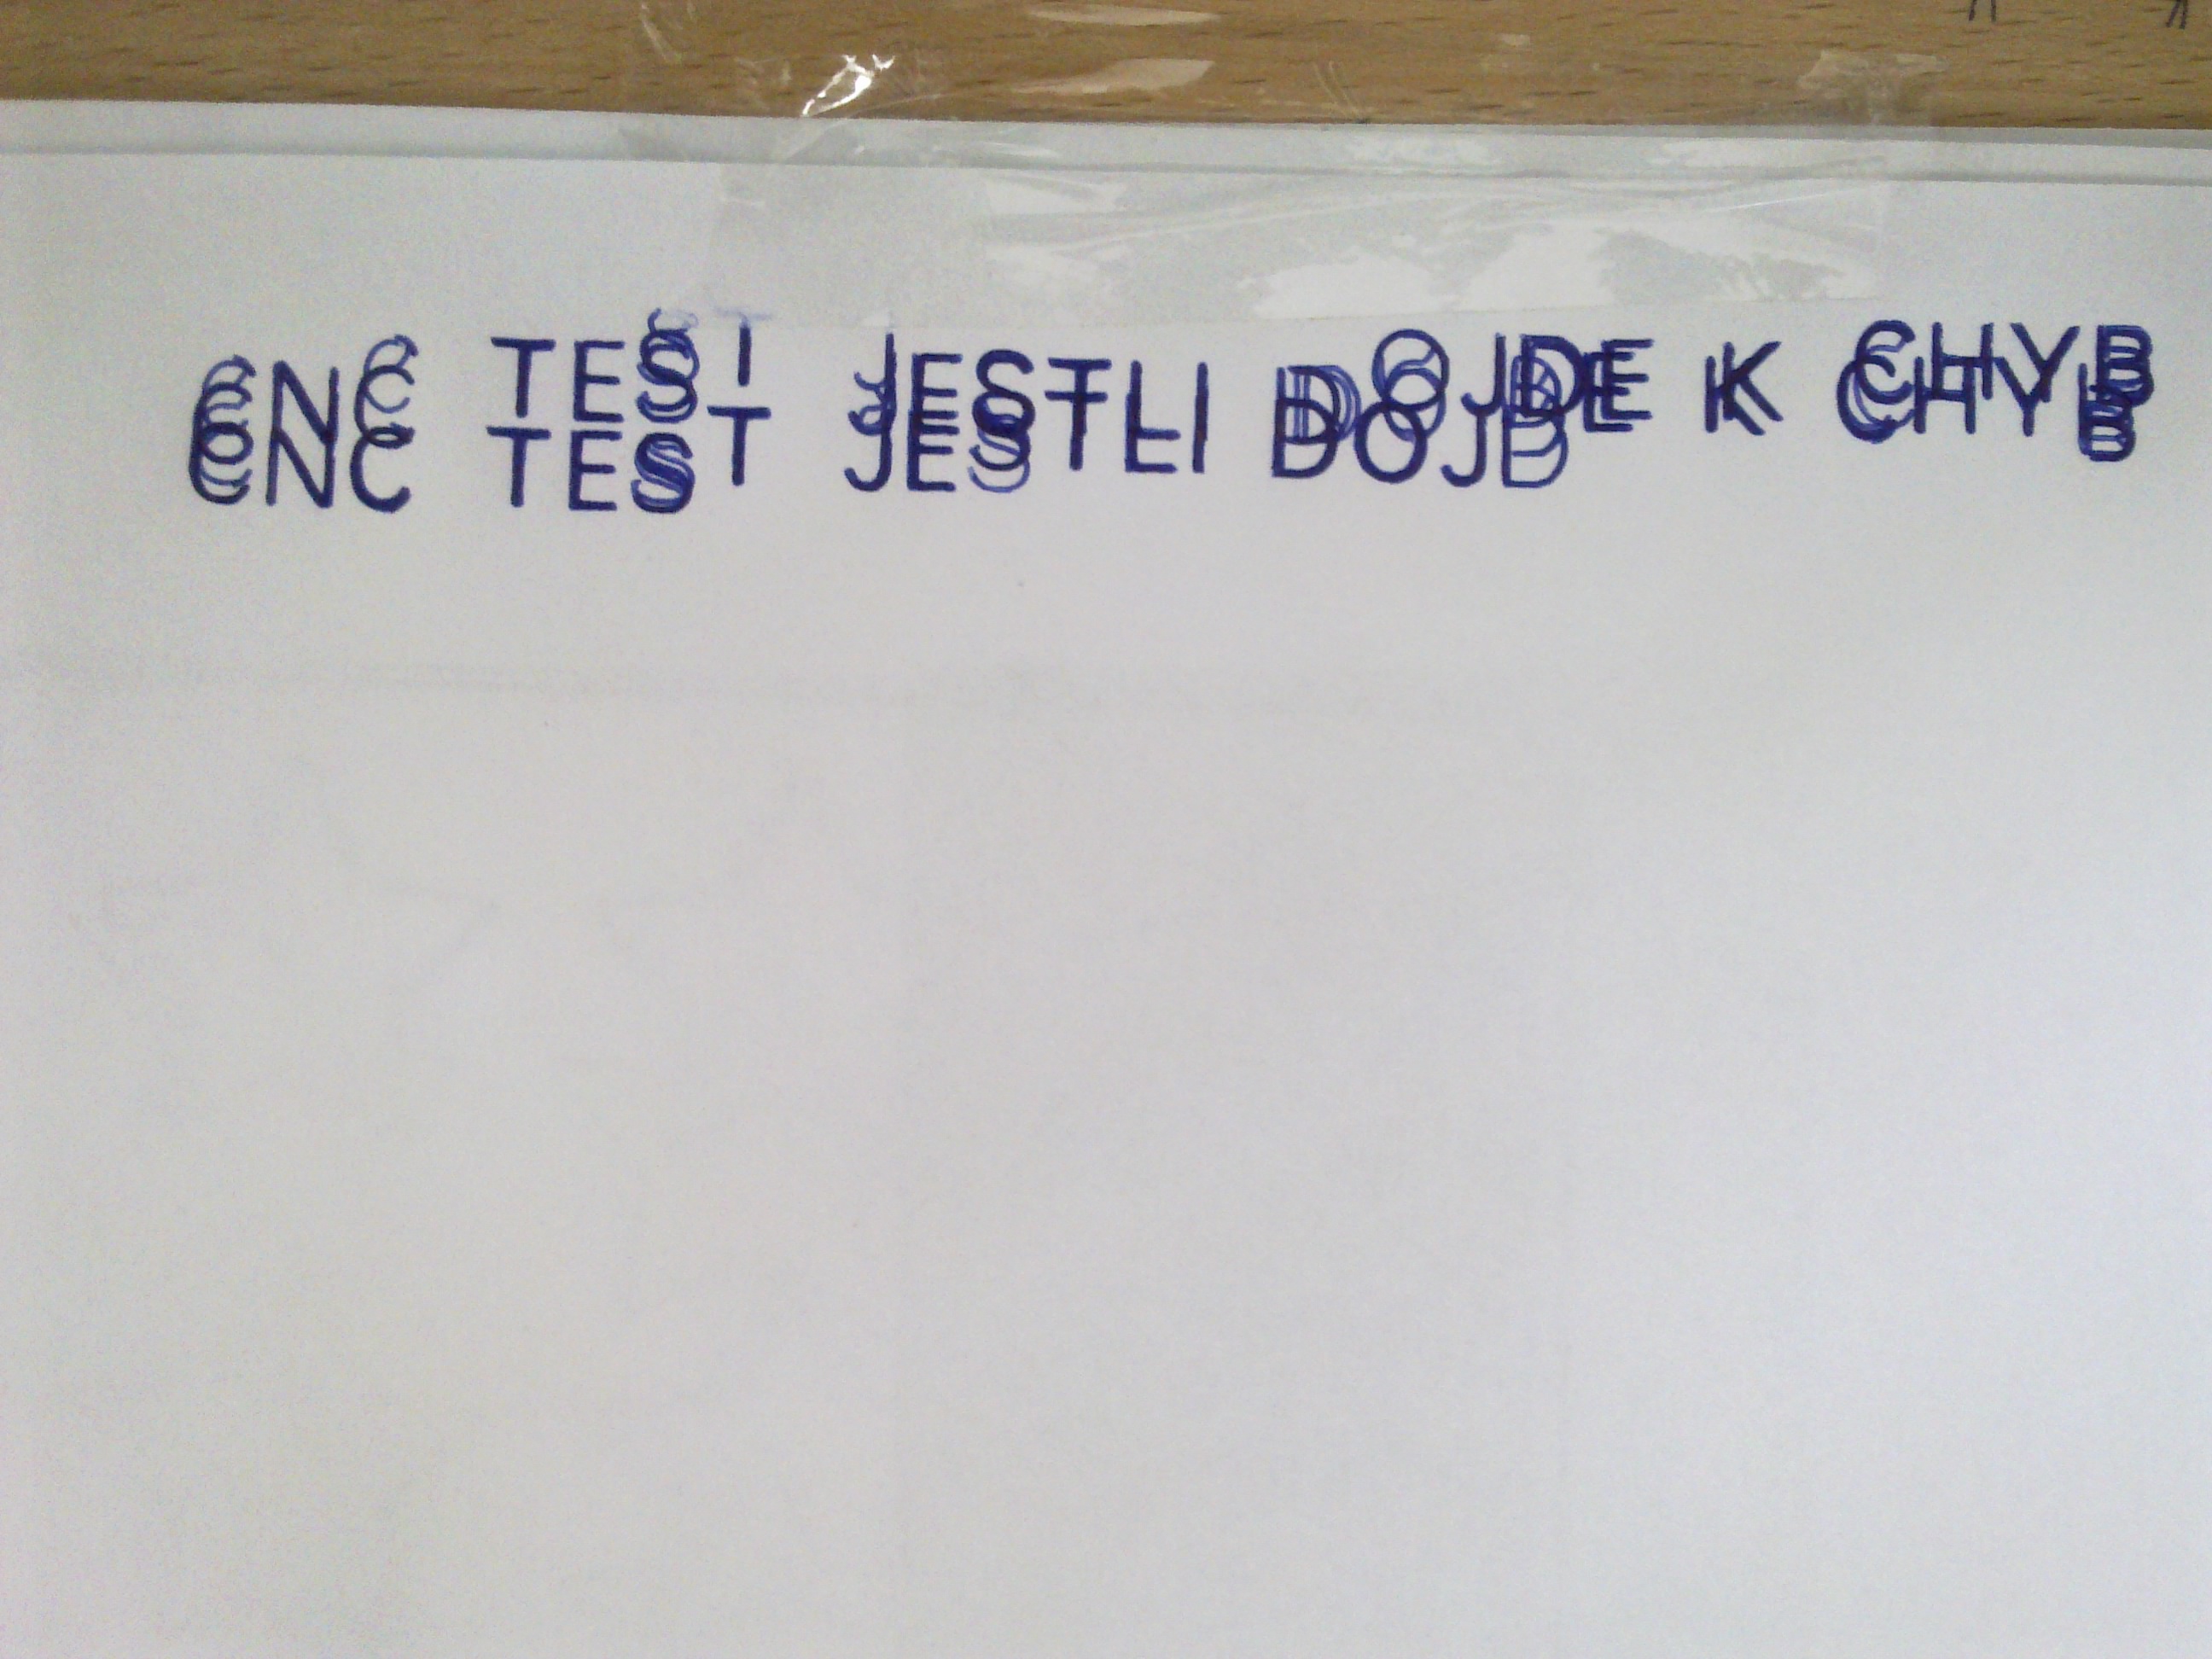 CNC TEST JESTLI DOJDE K CHYB
CNC TEST JESTLI DOJD